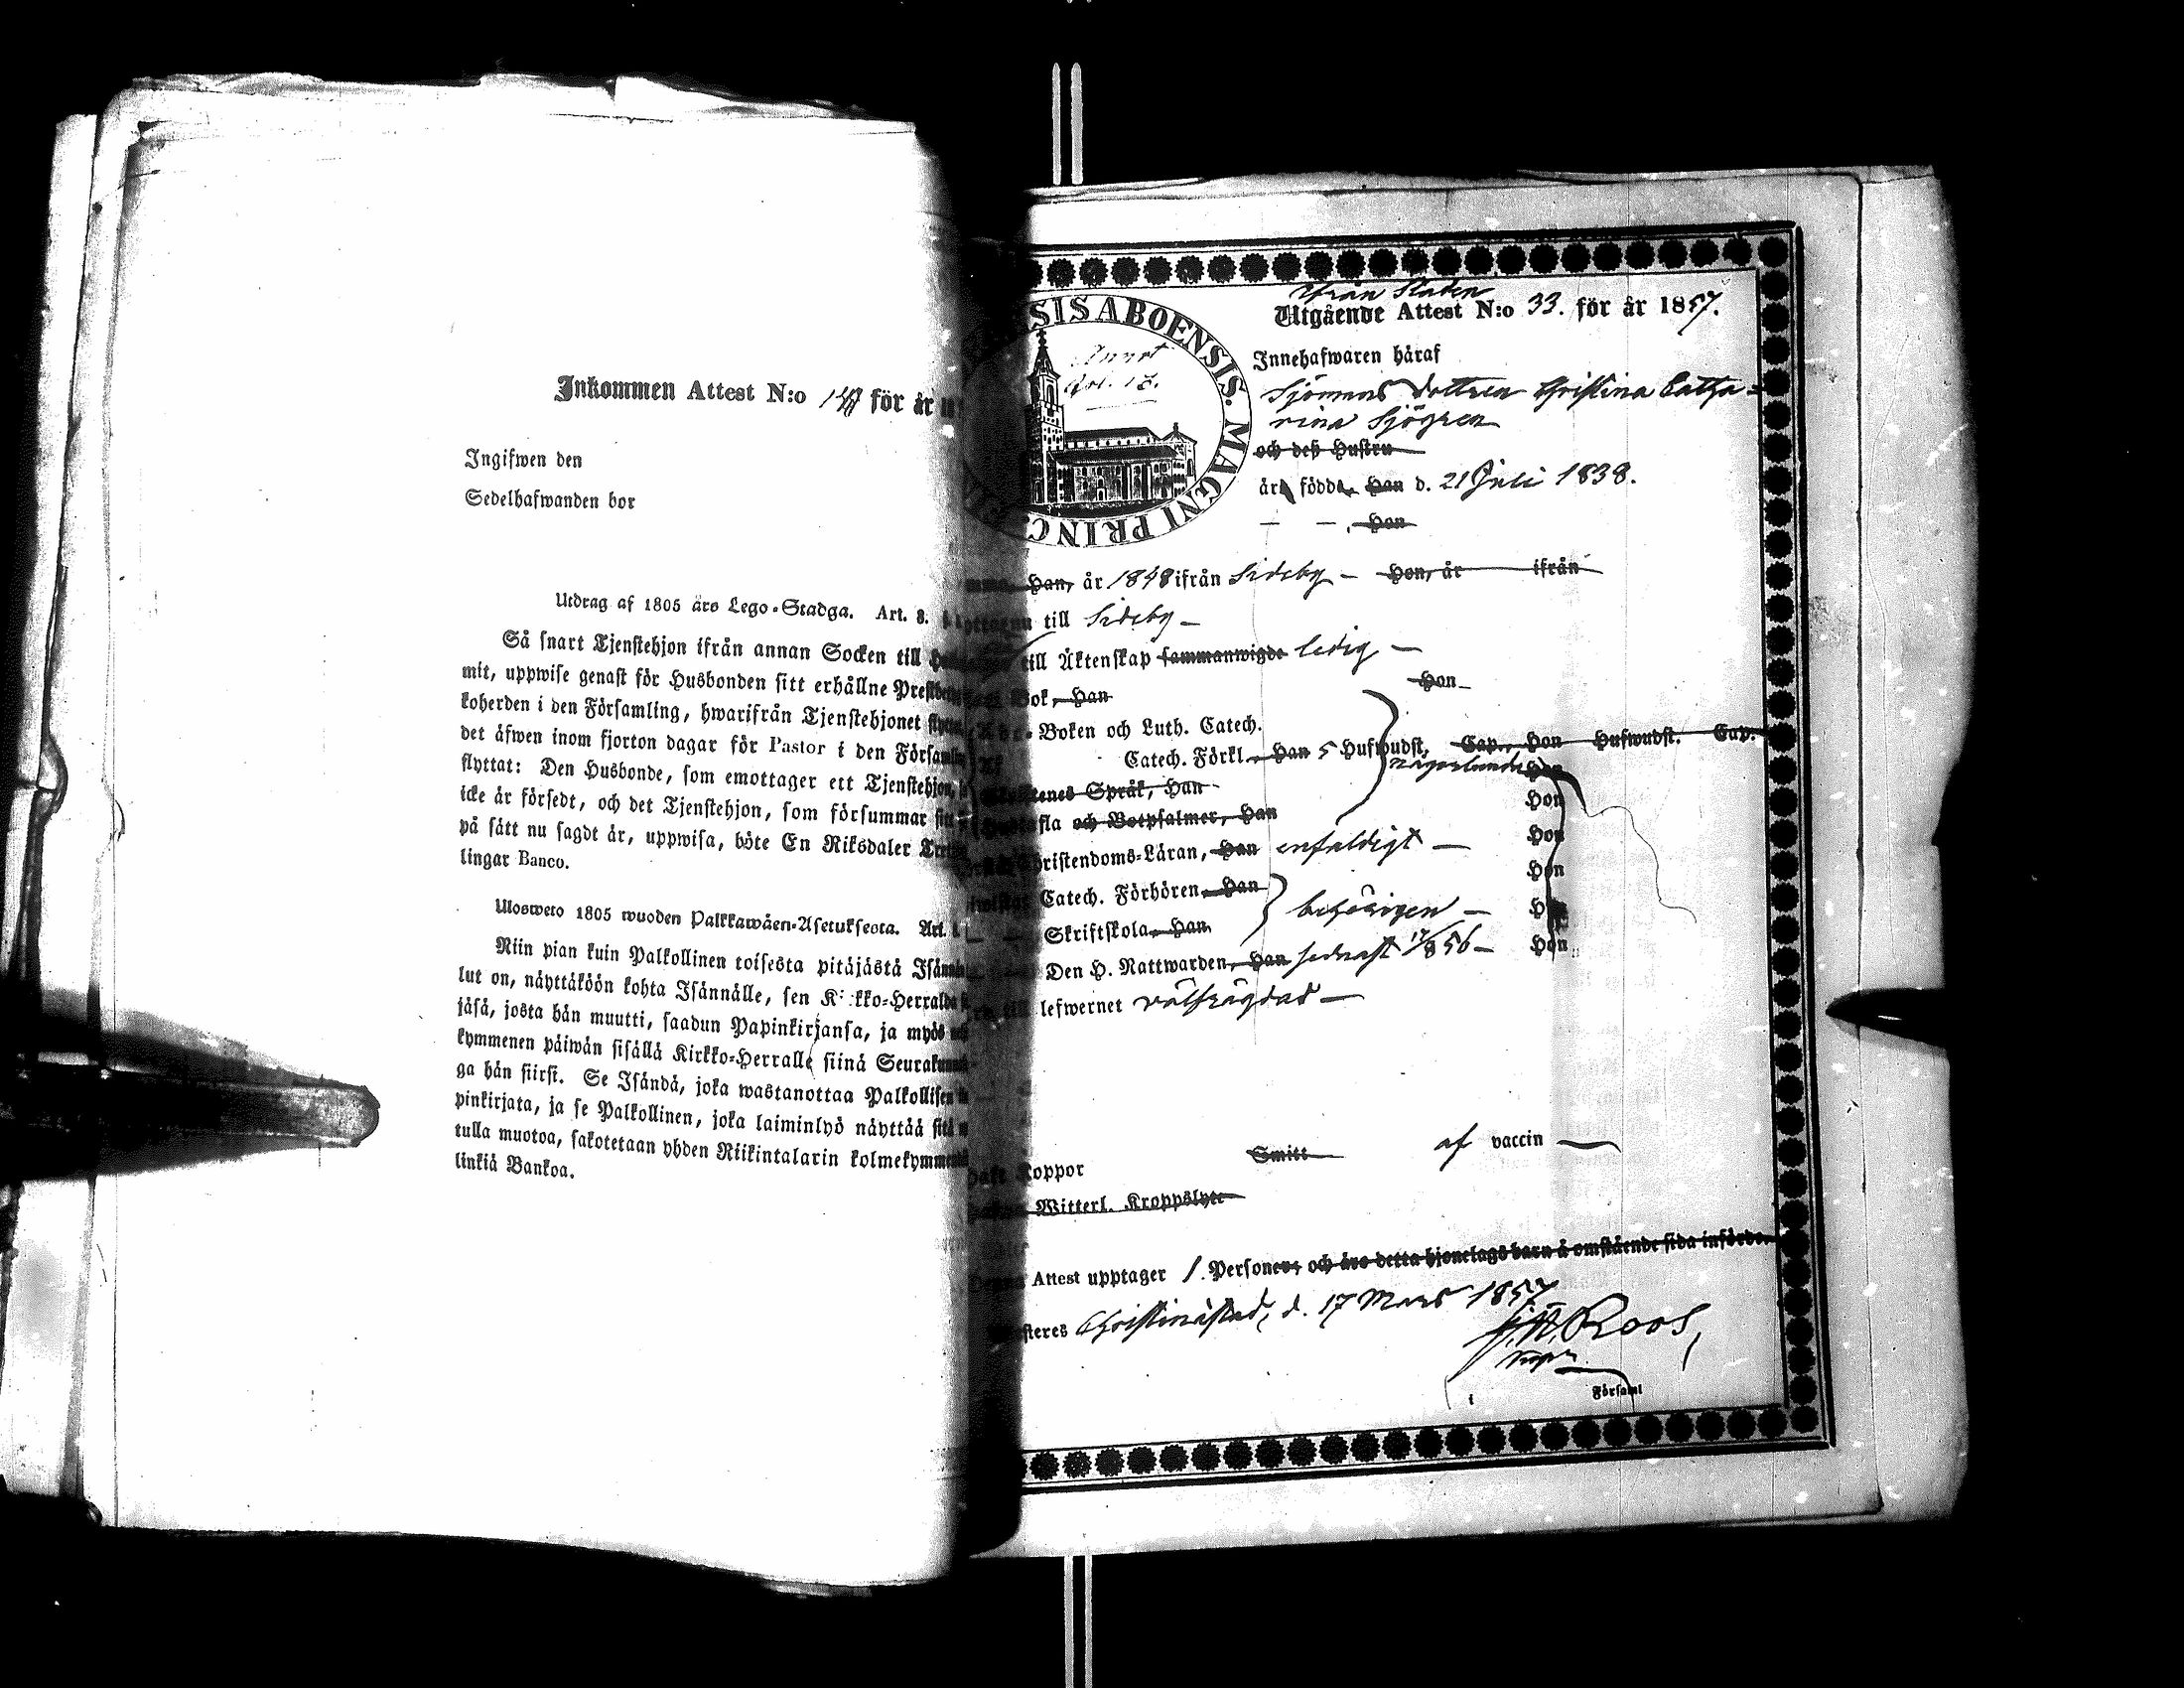 Inkommen Attest N:o för år
Ingifwen den
Sedelhafwanden bor
Utdrag af 1805 års Lego-Stadga. Art. 8.
Så snart Tjenstehjon ifrån annan Socken till
mit, uppwise genast för Husbonden sitt erhållne
koherden i den Församling, hwarifrån Tjenstehjonet
det åfwen inom fjorton dagar för Pastor i den
flyttat: Den Husbonde, som emottager ett Tjenstehjon,
icke år försedt, och det Tjenstehjon, som försummar
på sätt nu sagdt år, uppwisa, böte En Riksdaler
lingar Banco.
Ulosweto 1805 wuoden Palkkawäen-Asetuksesta. Art.
Niin pian kuin Palkollinen toisesta pitäjästä
lut on, näyttäköön kohta Isännälle, sen
jäsä, josta hän muutti, saadun Papinkirjansa, ja myös
kymmenen päiwän sisällä Kirkko-Herralle siinä
ga hän siirst. Se Isändä, joka wastanottaa Palkollisen
pinkirjata, ja se Palkollinen, joka laiminlyö näyttää
tulla muotoa, sakotetaan yhden Riikintalarin
linkiä Bankoa.
ifrån Staden
Utgående Attest N:o 33. för år 1857.
ABOENSIS. MAGNI PRINC.
Annot
fol. 18.
Innehafwaren håraf
Sjömans dottren Christina Catha-
rina Sjögren
och deß Hustru
år född, Han d. 21 Juli 1838.
— —, Han
Han, år 1848 ifrån Sideby — Hon, år ifrån
till Sideby —
till Äktenskap sammanwigde ledig —
Hon
Bok, Han
Boken och Luth. Catech.
Catech. Förkl. Han 5 Hufwudst, Cap., Hon Hufwudst. Cap.
någorlunda Hon
Språk, Han
Hon
och Botpsalmer, Han
Hon
Christendoms-Läran, Han enfaldigt —
Hon
Catech. Förhören, Han
behörigen —
Skriftskola, Han
Den H. Nattwarden, Han sednast 17/8 56 — Hon
till lefwernet välfrägdad —
Koppor Smitt af vaccin —
Witterl. Kroppslyte
Attest upptager 1. Personer, och äro detta hjonelags barn å omstående sida införde.
Christinæstad, d. 17 Mars 1857
Roos,
i Församl